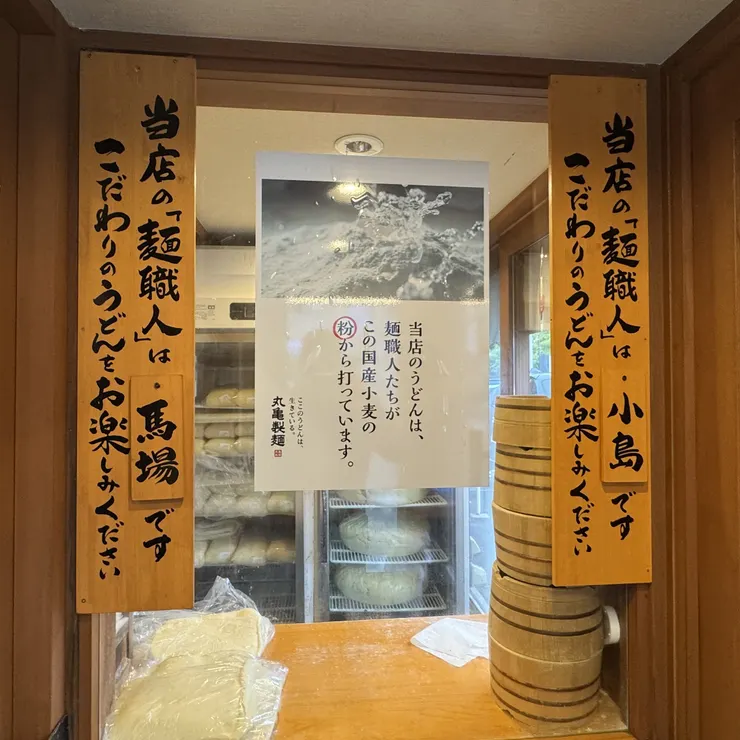 当店の「麺職人」は・小島です
こだわりのうどんをお楽しみください
当店のうどんは、
麺職人たちが
この国産小麦の
粉から打っています。
ここのうどんは、
生きている。
丸亀製麺
当店の「麺職人」は・馬場です
こだわりのうどんをお楽しみください